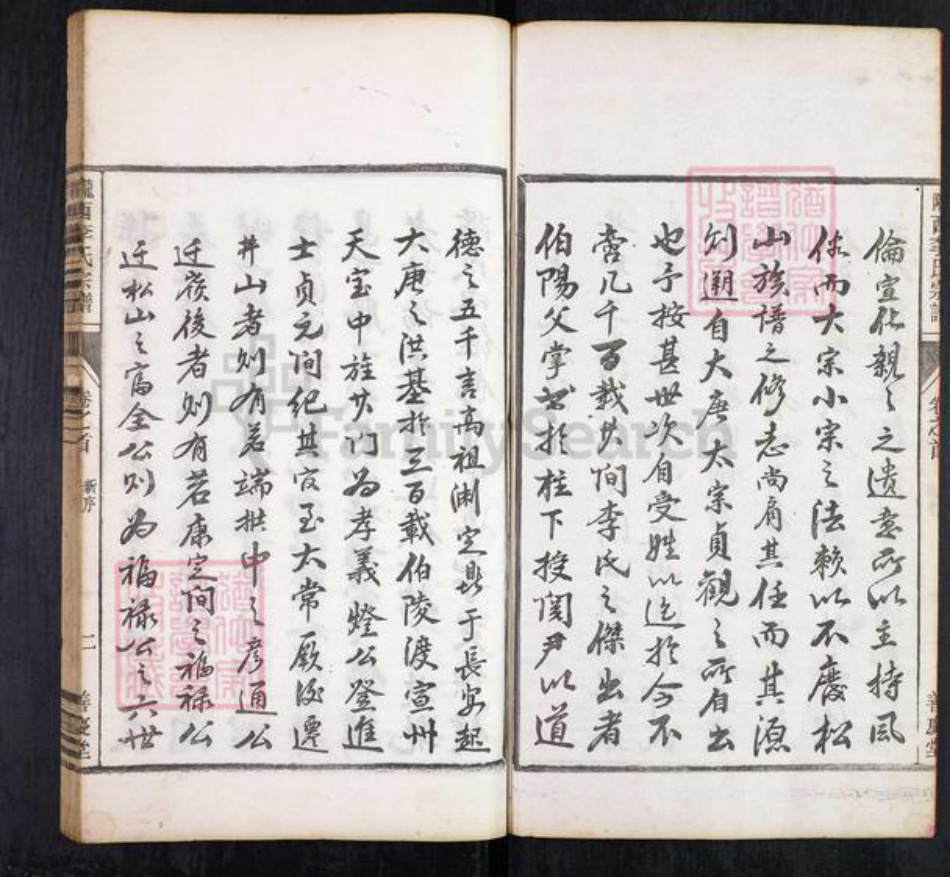 倫宣化親之之遺意所以主持風
俗而大宗小宗之法賴以不廢松
山族譜之修志尚肩其任而其源
則遡自大唐太宗貞觀之所自出
也予按其世次自受姓以迄於今不
啻幾千百載其間李氏之傑出者
伯陽父掌書於柱下授関尹以道
德之五千言高祖渊定鼎于長安起
大唐之洪基於三百載伯陵渡宣州
天宝中旌其門為孝義燈公登進
士貞元间紀其官至太常厥後遷
井山者則有若端拱中之彦通公
迁嶺後者則有若康定间之福祿公
迁松山之富全公則為福祿公之六世
隴西李氏宗譜
卷之首
新序
二
善慶堂
FamilySearch